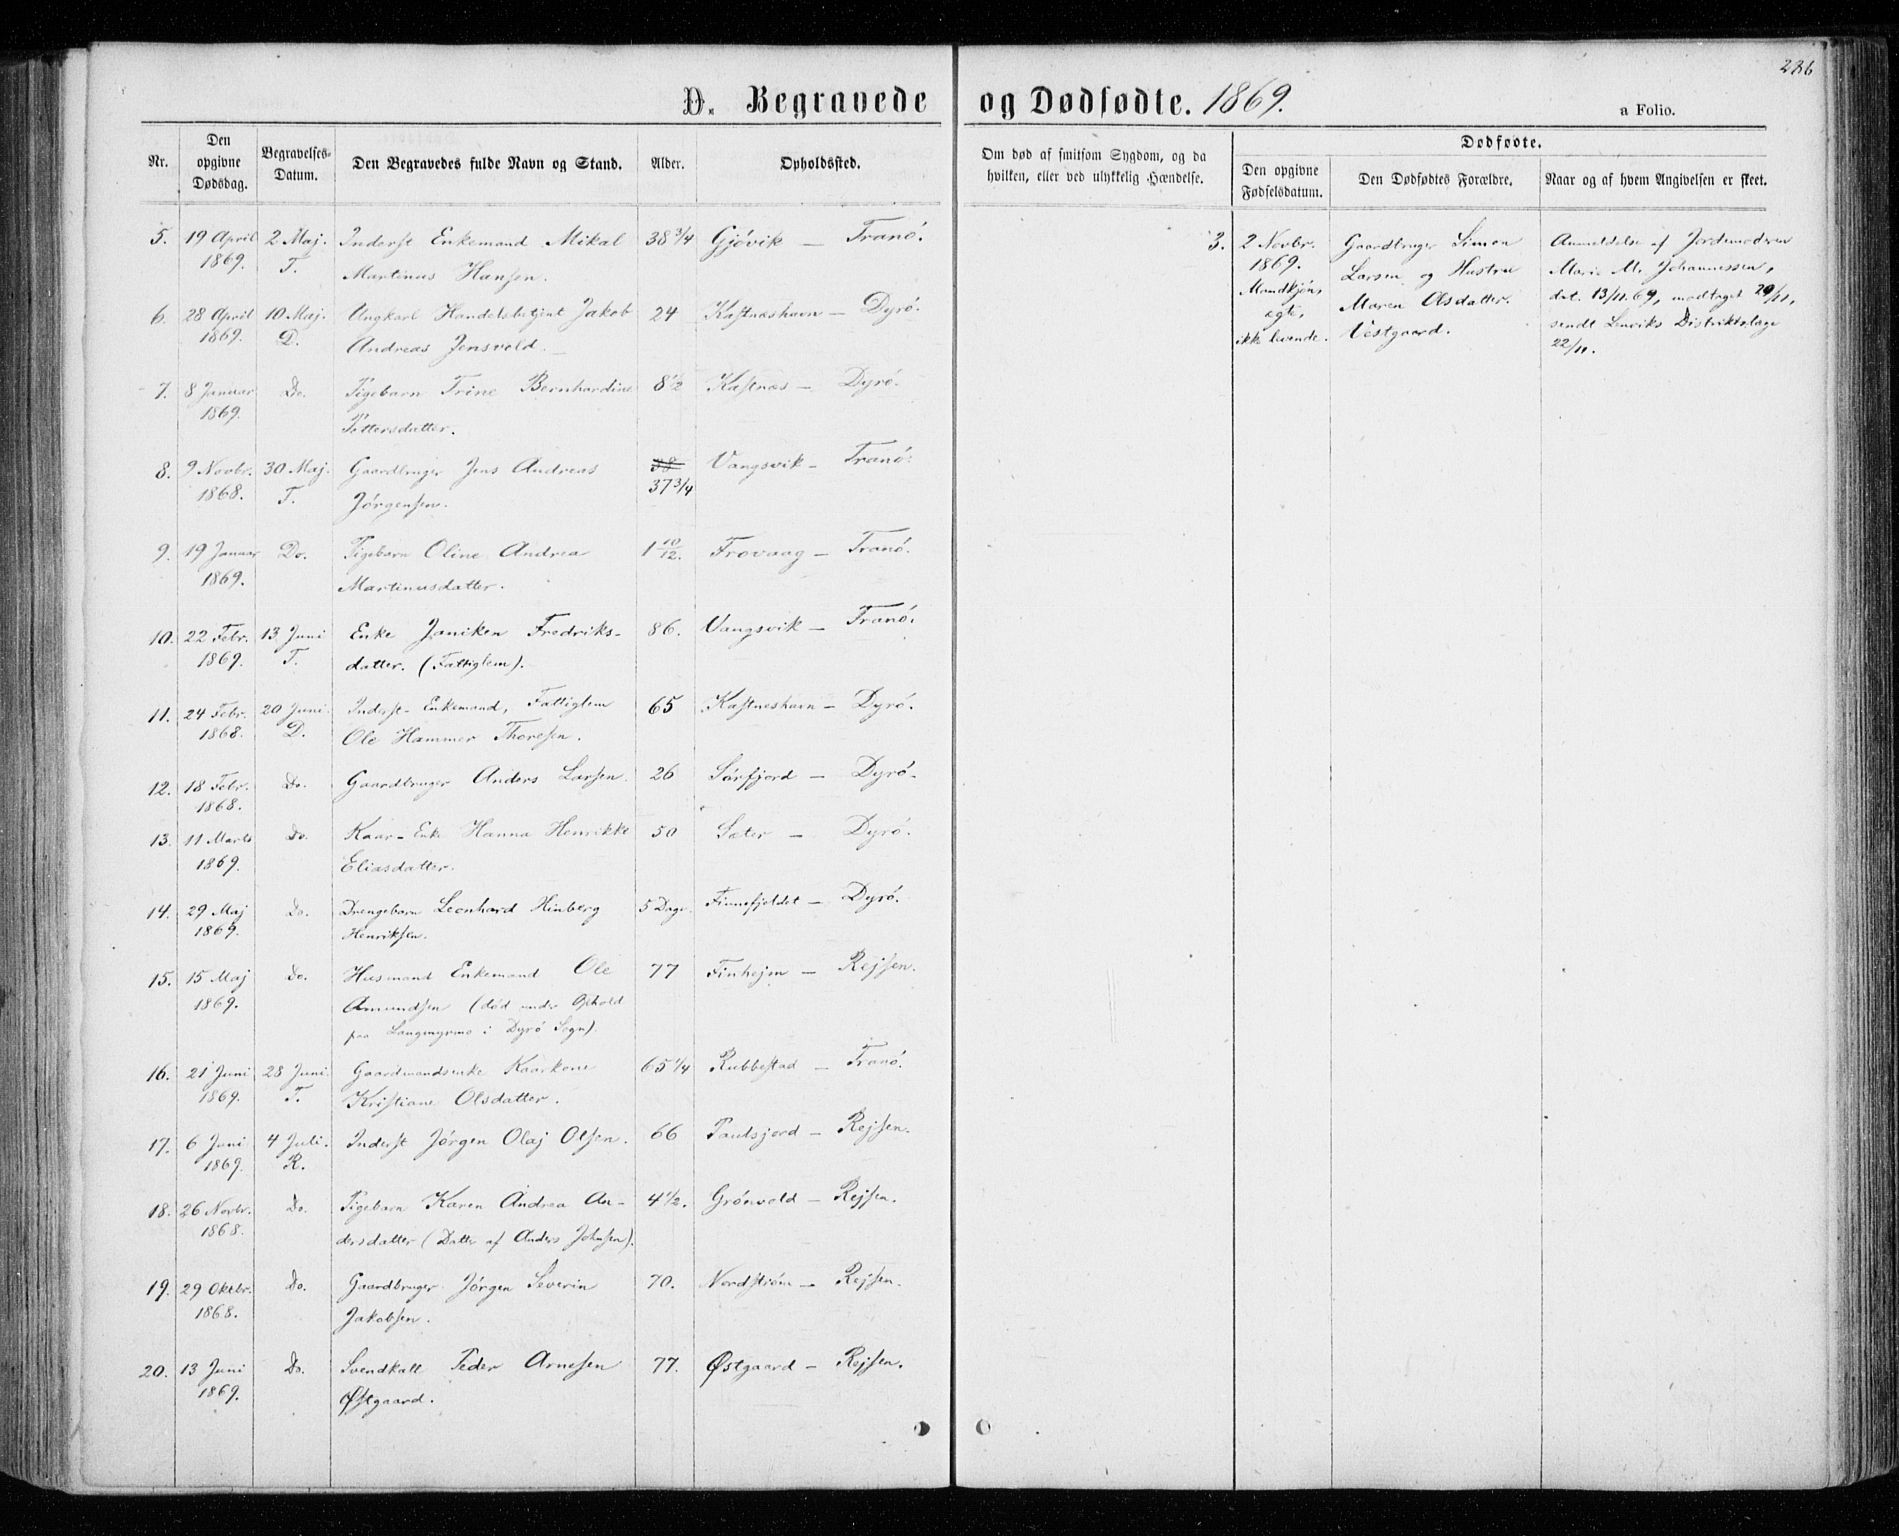 286
D. Begravede og Dødfødte. 1869.
a Folio.
Nr.
Den opgivne Dødsdag.
Begravelses-Datum.
Den Begravedes fulde Navn og Stand.
Alder.
Opholdssted.
Om død af smitsom Sygdom, og da hvilken, eller ved ulykkelig Hændelse.
Dødfødte.
Den opgivne Fødselsdatum.
Den Dødfødtes Forældre.
Naar og af hvem Angivelsen er skeet.
5. 19 April 2 Maj. Inderst Enkemand Mikal 38 3/4 Gjövik — Tranö.
1869. T. Martinus Hansen.
6. 28 April 10 Maj. Ungkarl Handelsbetjent Jakob 24 Kastneshavn — Dyrö.
1869. D. Andreas Jensvold.
7. 8 Januar Do. Pigebarn Trine Bernhardine 8 1/2 Kastnes — Dyrö.
1869. Pettersdatter.
8. 9 Novbr. 30 Maj. Gaardbruger Jens Andreas 38 Vangsvik — Tranö.
1868. T. Jörgensen. 37 3/4
9. 19 Januar Do. Pigebarn Oline Andrea 1 10/12. Frovaag — Tranö.
1869. Martinusdatter.
10. 22 Febr. 13 Juni Enke Janiken Fredriks- 86. Vangsvik — Tranö.
1869. T. datter. (Fattiglem).
11. 24 Febr. 20 Juni. Inderst- Enkemand, Fattiglem 65 Kastneshavn — Dyrö.
1868. D. Ole Hammer Thoresen.
12. 18 Febr. Do. Gaardbruger Anders Larsen. 26 Sörfjord — Dyrö.
1868.
13. 11 Marts Do. Kaar-Enke Hanna Henrikke 50 Sæter — Dyrö.
1869. Eliasdatter.
14. 29 Maj Do. Drengebarn Leonhard Hinberg 5 Dage. Finnefjeldet — Dyrö.
1869. Henriksen.
15. 15 Maj Do. Husmand Enkemand Ole 77 Finhejm — Rejsen.
1869. Amundsen (död under Ophold
paa Langmyrmo i Dyrö Sogn).
16. 21 Juni 28 Juni. Gaardmandsenke Kaarkone 65 1/4 Rubbestad — Tranö.
1869. T. Kristiane Olsdatter.
17. 6 Juni 4 Juli. Inderst Jörgen Olaj Olsen. 66 — Rejsen.
1869. R.
18. 26 Novbr. Do. Pigebarn Karen Andrea An- 4 1/2. Grönvold — Rejsen.
1868. dersdatter (Datter af Anders Johnsen).
19. 29 Oktbr. Do. Gaardbruger Jörgen Severin 70. Nordström — Rejsen.
1868. Jakobsen.
20. 13 Juni Do. Svendkall Peder Arnesen 77. Østgaard — Rejsen.
1869. Østgaard.
3. 2 Novbr. Gaardbruger Simon Anmeldelse af Jordemoderen
1869. Larsen og Hustru Marie M. Johannessen,
Mandkjön, Maren Olsdatter. dat. 13/11.69, modtaget 20/11,
ægte, Vestgaard. sendt Lenviks Distriktslæge
ikke levende. 22/11.